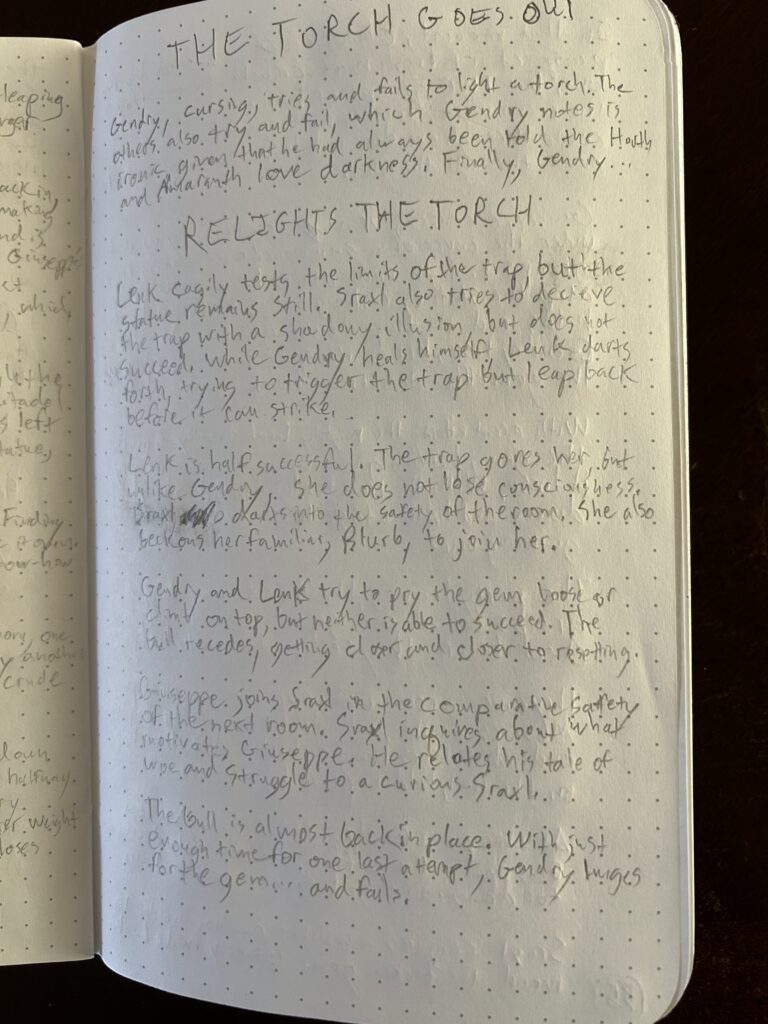 leaping
THE TORCH GOES OUT
Gendry, cursing, tries and fails to light a torch. The
others also try and fail, which Gendry notes is
ironic, given that he had always been told the
and Amaranth love darkness. Finally, Gendry...
RELIGHTS THE TORCH
Lenk cagily tests the limits of the trap, but the
statue remains still. Sraxl also tries to decieve
the trap with a shadowy illusion, but does not
succeed. While Gendry heals himself, Lenk darts
forth, trying to trigger the trap but leap back
before it can strike.
Lenk is half successful. The trap gores her, but
unlike Gendry, she does not lose consciousness.
Sraxl darts into the safety of the room. She also
beckons her familiar, Blurb, to join her.
Gendry and Lenk try to pry the gem loose or
climb on top, but neither is able to succeed. The
bull recedes, getting closer and closer to resetting.
Giuseppe joins Sraxl in the comparative safety
of the next room. Sraxl inquires about what
motivates Giuseppe. He relates his tale of
woe and struggle to a curious Sraxl.
The bull is almost back in place. With just
enough time for one last attempt, Gendry lunges
for the gem... and fails.